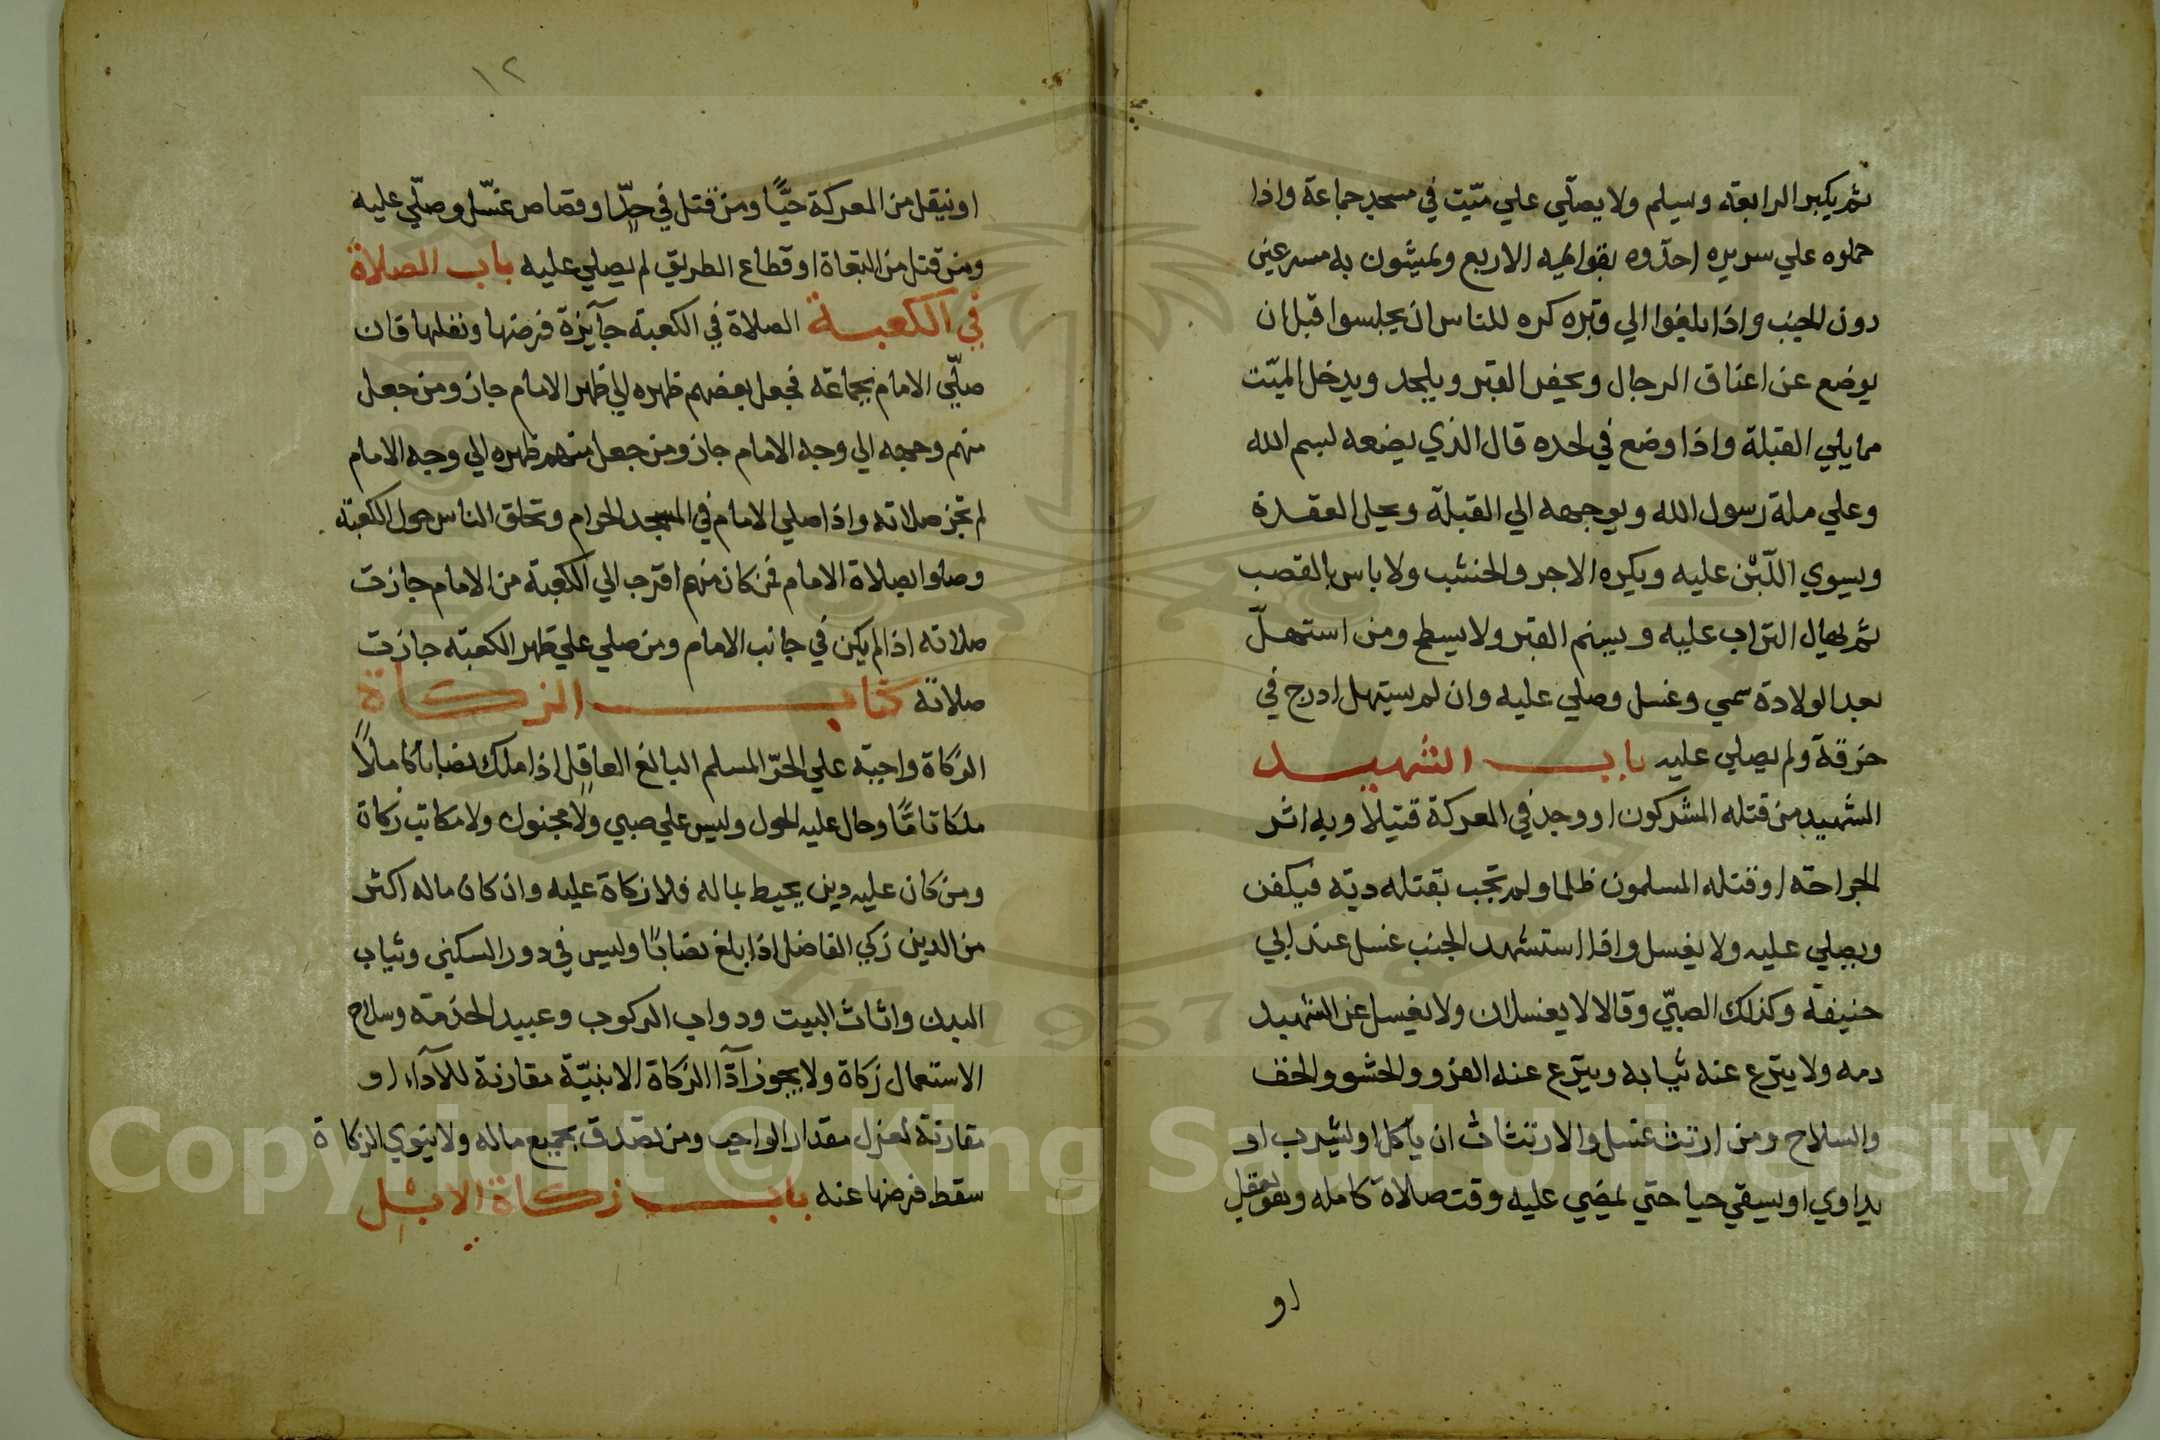 ثم يكبر الرابعة ويسلم ولا يصلّي علي ميّت في مسجد جماعة واذا
حملوه علي سريره اخذوه بقوائمه الاربع ويمشون به مسرعين
دون الخبب واذا بلغوا الي قبره كره للناس ان يجلسوا قبل ان
يوضع عن اعناق الرجال ويحفر القبر ويلحد ويدخل الميّت
مما يلي القبلة واذا وضع في لحده قال الذي يضعه بسم الله
وعلي ملة رسول الله ويوجهه الي القبلة ويحل العقدة
ويسوي اللّبن عليه ويكره الاجر والخشب ولا باس بالقصب
ثم يهال التراب عليه ويسنم القبر ولا يسطح ومن استهلّ
بعد الولادة سمي وغسل وصلي عليه وان لم يستهل ادرج في
خرقة ولم يصلي عليه باب الشهيد
الشهيد من قتله المشركون او وجد في المعركة قتيلا وبه اثر
الجراحة او قتله المسلمون ظلما ولم تجب بقتله دية فيكفن
ويصلي عليه ولا يغسل واذا استشهد الجنب غسل عند ابي
حنيفة وكذلك الصبيّ وقالا لا يغسلان ولا يغسل عن الشهيد
دمه ولا ينزع عنه ثيابه وينزع عنه الفرو والحشو والخف
والسلاح ومن ارتث غسل والارتثاث ان يأكل او يشرب او
يداوي او يبقي حيا حتي يمضي عليه وقت صلاة كامله وهو يعقل
او
١٢
او ينقل من المعركة حيًّا ومن قتل في حدّ او قصاص غسّل وصلّي عليه
ومن قتل من البغاة او قطاع الطريق لم يصلي عليه باب الصلاة
في الكعبة الصلاة في الكعبة جآيزة فرضها ونفلها فان
صلّي الامام بجماعة فجعل بعضهم ظهره الي ظهر الامام جاز ومن جعل
منهم وجهه الي وجه الامام جاز ومن جعل منهم ظهره الي وجه الامام
لم تجز صلاته واذا صلي الامام في المسجد الحرام وتحلق الناس حول الكعبة
وصلوا بصلاة الامام فمن كان منهم اقرب الي الكعبة من الامام جازت
صلاته اذا لم يكن في جانب الامام ومن صلي علي ظهر الكعبة جازت
صلاته كتاب الزكاة
الزكاة واجبة علي الحرّ المسلم البالغ العاقل اذا ملك نصابا كاملاً
ملكا تامًّا وحال عليه الحول وليس علي صبي ولا مجنون ولا مكاتب زكاة
ومن كان عليه دين يحيط بماله فلا زكاة عليه وان كان ماله اكثر
من الدين زكي الفاضل اذا بلغ نصابًا وليس في دور السكني وثياب
البدن واثاث البيت ودواب الركوب وعبيد الخدمة وسلاح
الاستعمال زكاة ولا يجوز ادآ الزكاة الا بنيّة مقارنة للاداء او
مقارنة لعزل مقدار الواجب ومن تصدق بجميع ماله ولا ينوي الزكاة
سقط فرضها عنه باب زكاة الابل
Copyright © King Saud University
1957